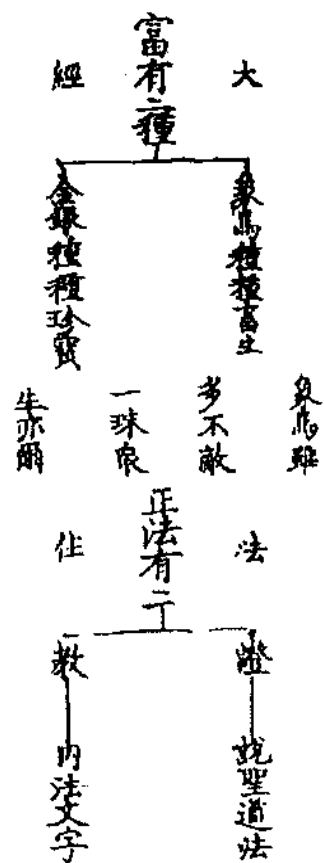 大
富有二種
經
象馬種種畜生
金銀種種珍寶
象馬雖
多不敵
一珠衆
生亦爾
法
正法有二
住
證
說聖道法
教
內法文字